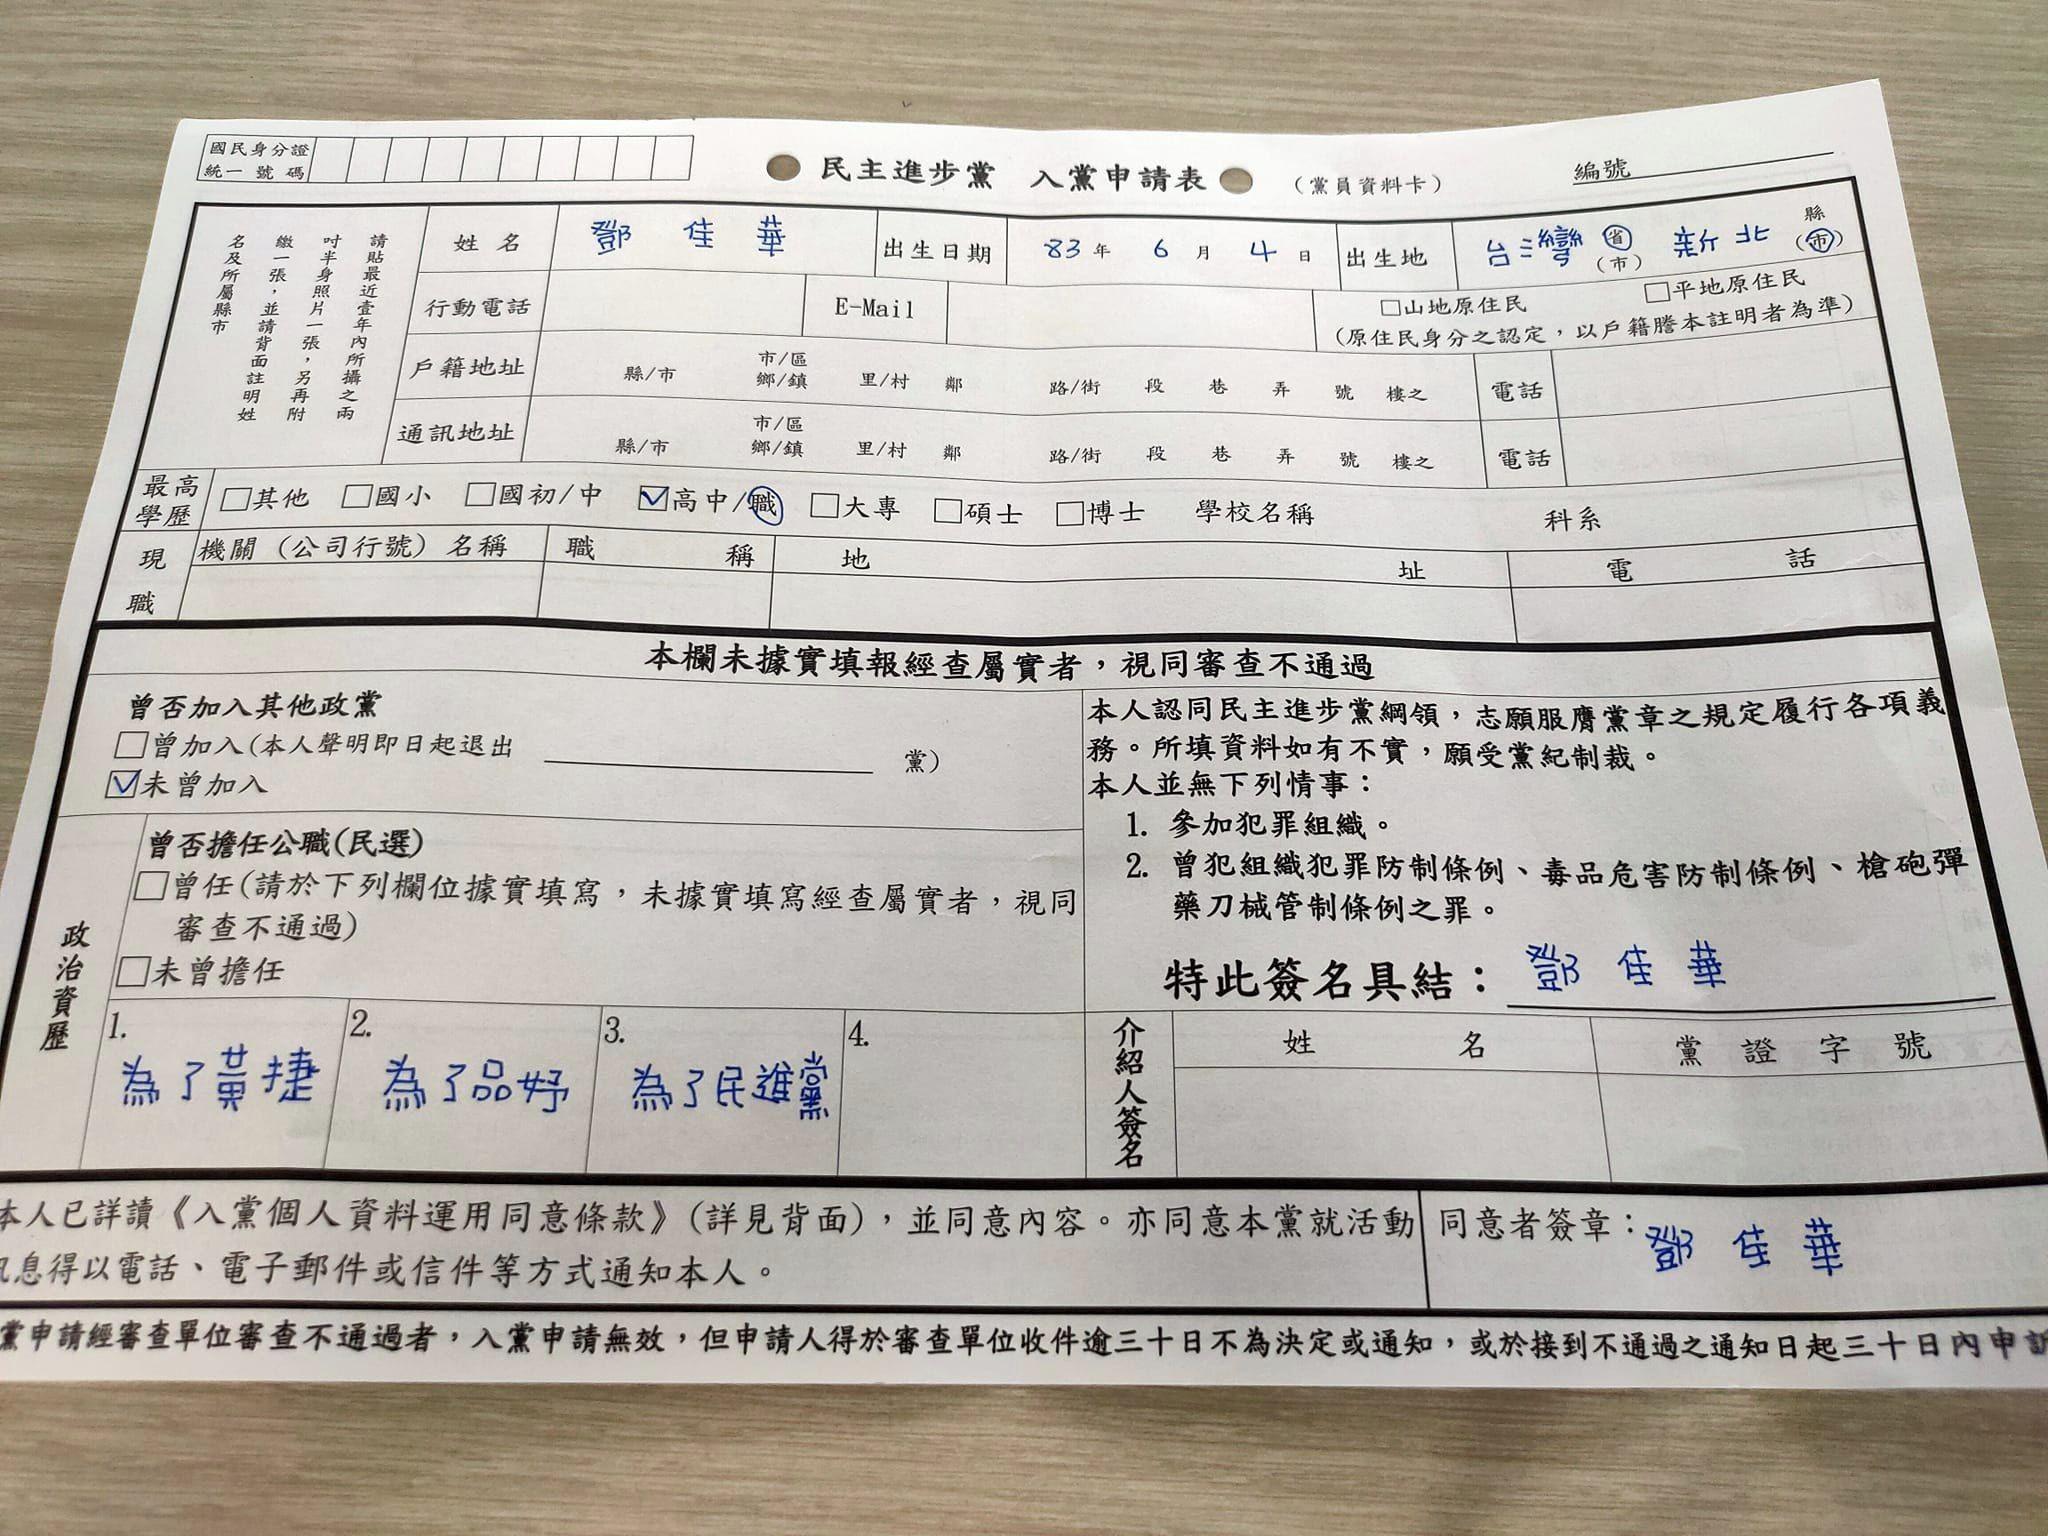 國民身分證
統一號碼
民主進步黨 入黨申請表 (黨員資料卡)
編號
請貼最近壹年內所攝之兩
吋半身照片一張,另再附
繳一張,並請背面註明姓
名及所屬縣市
姓名 鄧佳華 出生日期 83年6月4日 出生地 台灣省(市) 新北縣(市)
行動電話 E-Mail □山地原住民 □平地原住民
(原住民身分之認定,以戶籍謄本註明者為準)
戶籍地址 縣/市 市/區 鄉/鎮 里/村 鄰 路/街 段 巷 弄 號 樓之 電話
通訊地址 縣/市 市/區 鄉/鎮 里/村 鄰 路/街 段 巷 弄 號 樓之 電話
最高學歷 □其他 □國小 □國初/中 ☑高中/職 □大專 □碩士 □博士 學校名稱 科系
現職 機關(公司行號)名稱 職稱 地址 電話
本欄未據實填報經查屬實者,視同審查不通過
曾否加入其他政黨
□曾加入(本人聲明即日起退出 黨)
☑未曾加入
政治資歷
曾否擔任公職(民選)
□曾任(請於下列欄位據實填寫,未據實填寫經查屬實者,視同
審查不通過)
□未曾擔任
1. 為了黃捷
2. 為了品妤
3. 為了民進黨
4.
本人認同民主進步黨綱領,志願服膺黨章之規定履行各項義
務。所填資料如有不實,願受黨紀制裁。
本人並無下列情事:
1. 參加犯罪組織。
2. 曾犯組織犯罪防制條例、毒品危害防制條例、槍砲彈
藥刀械管制條例之罪。
特此簽名具結: 鄧佳華
介紹人簽名 姓名 黨證字號
本人已詳讀《入黨個人資料運用同意條款》(詳見背面),並同意內容。亦同意本黨就活動
訊息得以電話、電子郵件或信件等方式通知本人。
同意者簽章: 鄧佳華
黨申請經審查單位審查不通過者,入黨申請無效,但申請人得於審查單位收件逾三十日不為決定或通知,或於接到不通過之通知日起三十日內申訴